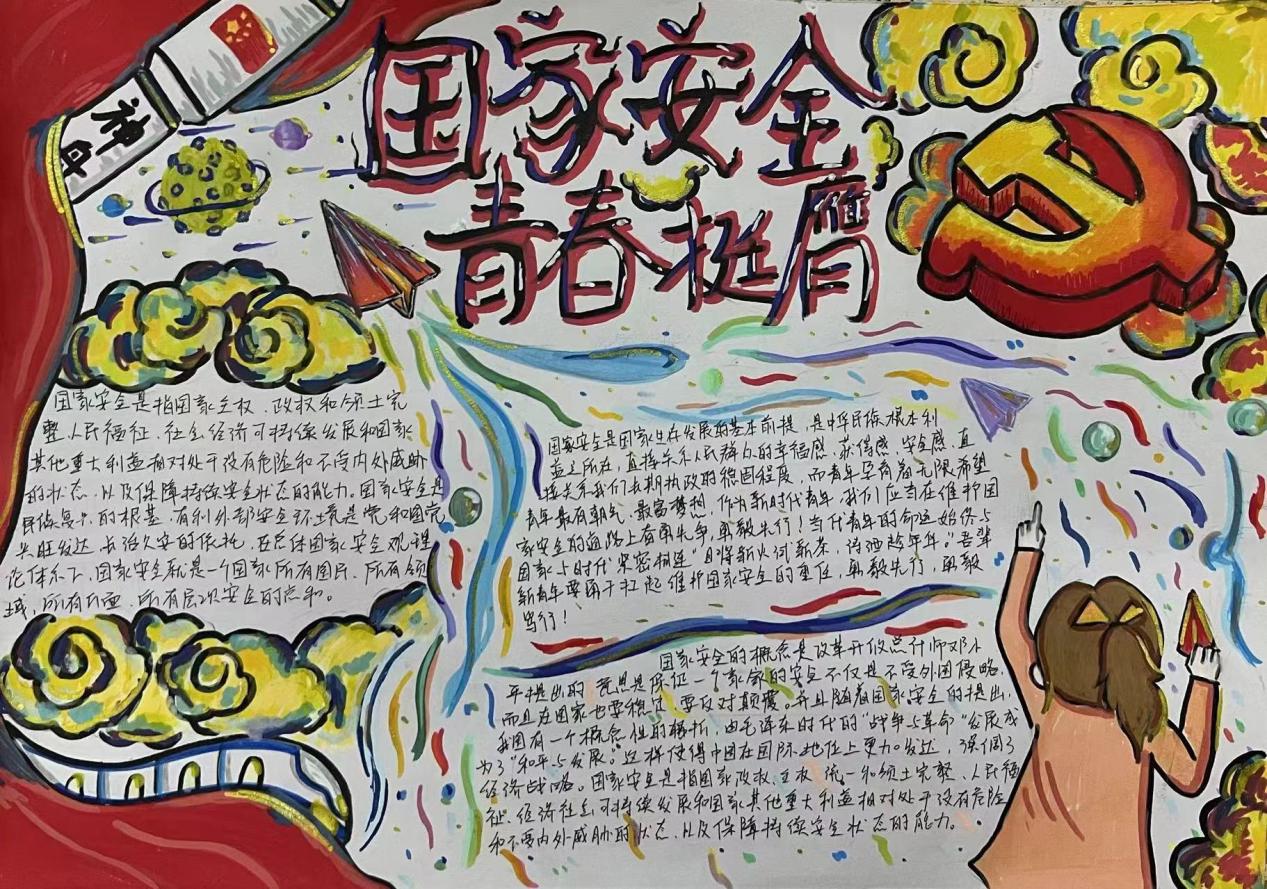 神舟
国家安全
青春挺膺
国家安全是指国家主权、政权和领土完
整、人民福祉、社会经济可持续发展和国家
其他重大利益相对处于没有危险和不受内外威胁
的状态，以及保障持续安全状态的能力。国家安全是
民族复兴的根基，有利外部安全环境是党和国家
兴旺发达、长治久安的依托，在总体国家安全观理
论体系下，国家安全就是一个国家所有国民、所有领
域、所有方面、所有层次安全的总和。
国家安全是国家生存发展的基本前提，是中华民族根本利
益之所在，直接关系人民群众的幸福感、获得感、安全感，直
接关系我们长期执政的稳固程度，而青年孕育着无限希望
青年最有朝气、最富梦想，作为新时代青年，我们应当在维护国
家安全的道路上奋勇先争，勇毅先行！当代青年的命运始终与
国家与时代紧密相连"且将新火试新茶，诗酒趁年华。"吾辈
新青年要勇于扛起维护国家安全的重任，勇毅先行，勇毅
笃行！
国家安全的概念是改革开放总计师邓小
平提出的，意思是保证一个家领的安全不仅是不受外国侵略，
而且在国家也要稳定，要反对颠覆。并且随着国家安全的提出，
我国有一个概念性的移折，由毛泽东时代的"战争与革命"发展成
为了"和平与发展"，这样使得中国在国际地位上更力发达，强调了
经济战略。国家安全是指国家政权、主权、统一和领土完整、人民福
祉、经济社会可持续发展和国家其他重大利益相对处于没有危险
和不受内外威胁的状态，以及保障持续安全状态的能力。